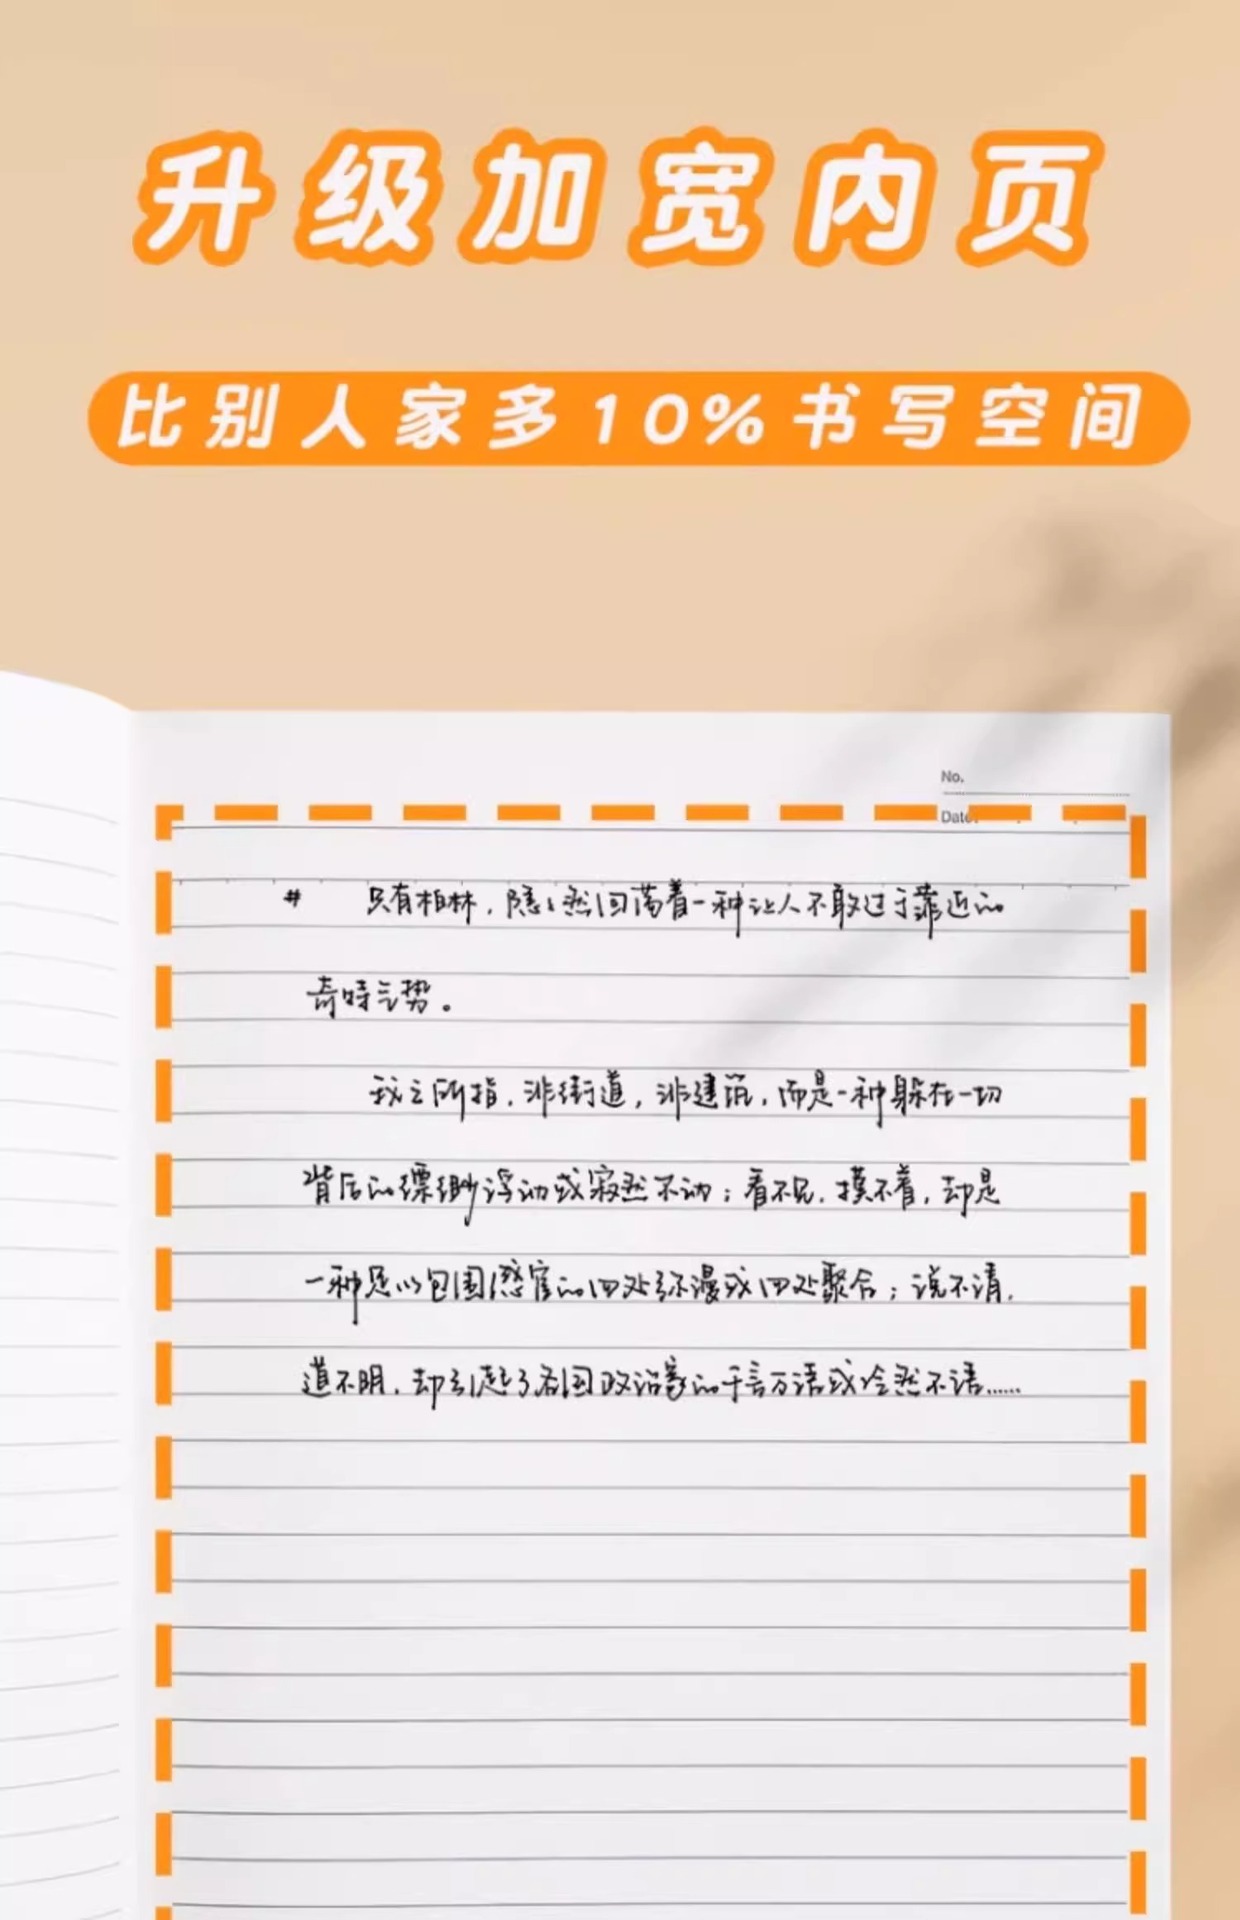 升级加宽内页
比别人家多10%书写空间
No.
Date
# 只有柏林，隐隐然回荡着一种让人不敢过于靠近的
奇特气势。
我之所指，非街道，非建筑，而是一种躲在一切
背后的缥缈浮动或寂然不动；看不见，摸不着，却是
一种足以包围感官的四处弥漫或四处聚合；说不清，
道不明，却引起了各国政治家的千言万语或冷然不语……